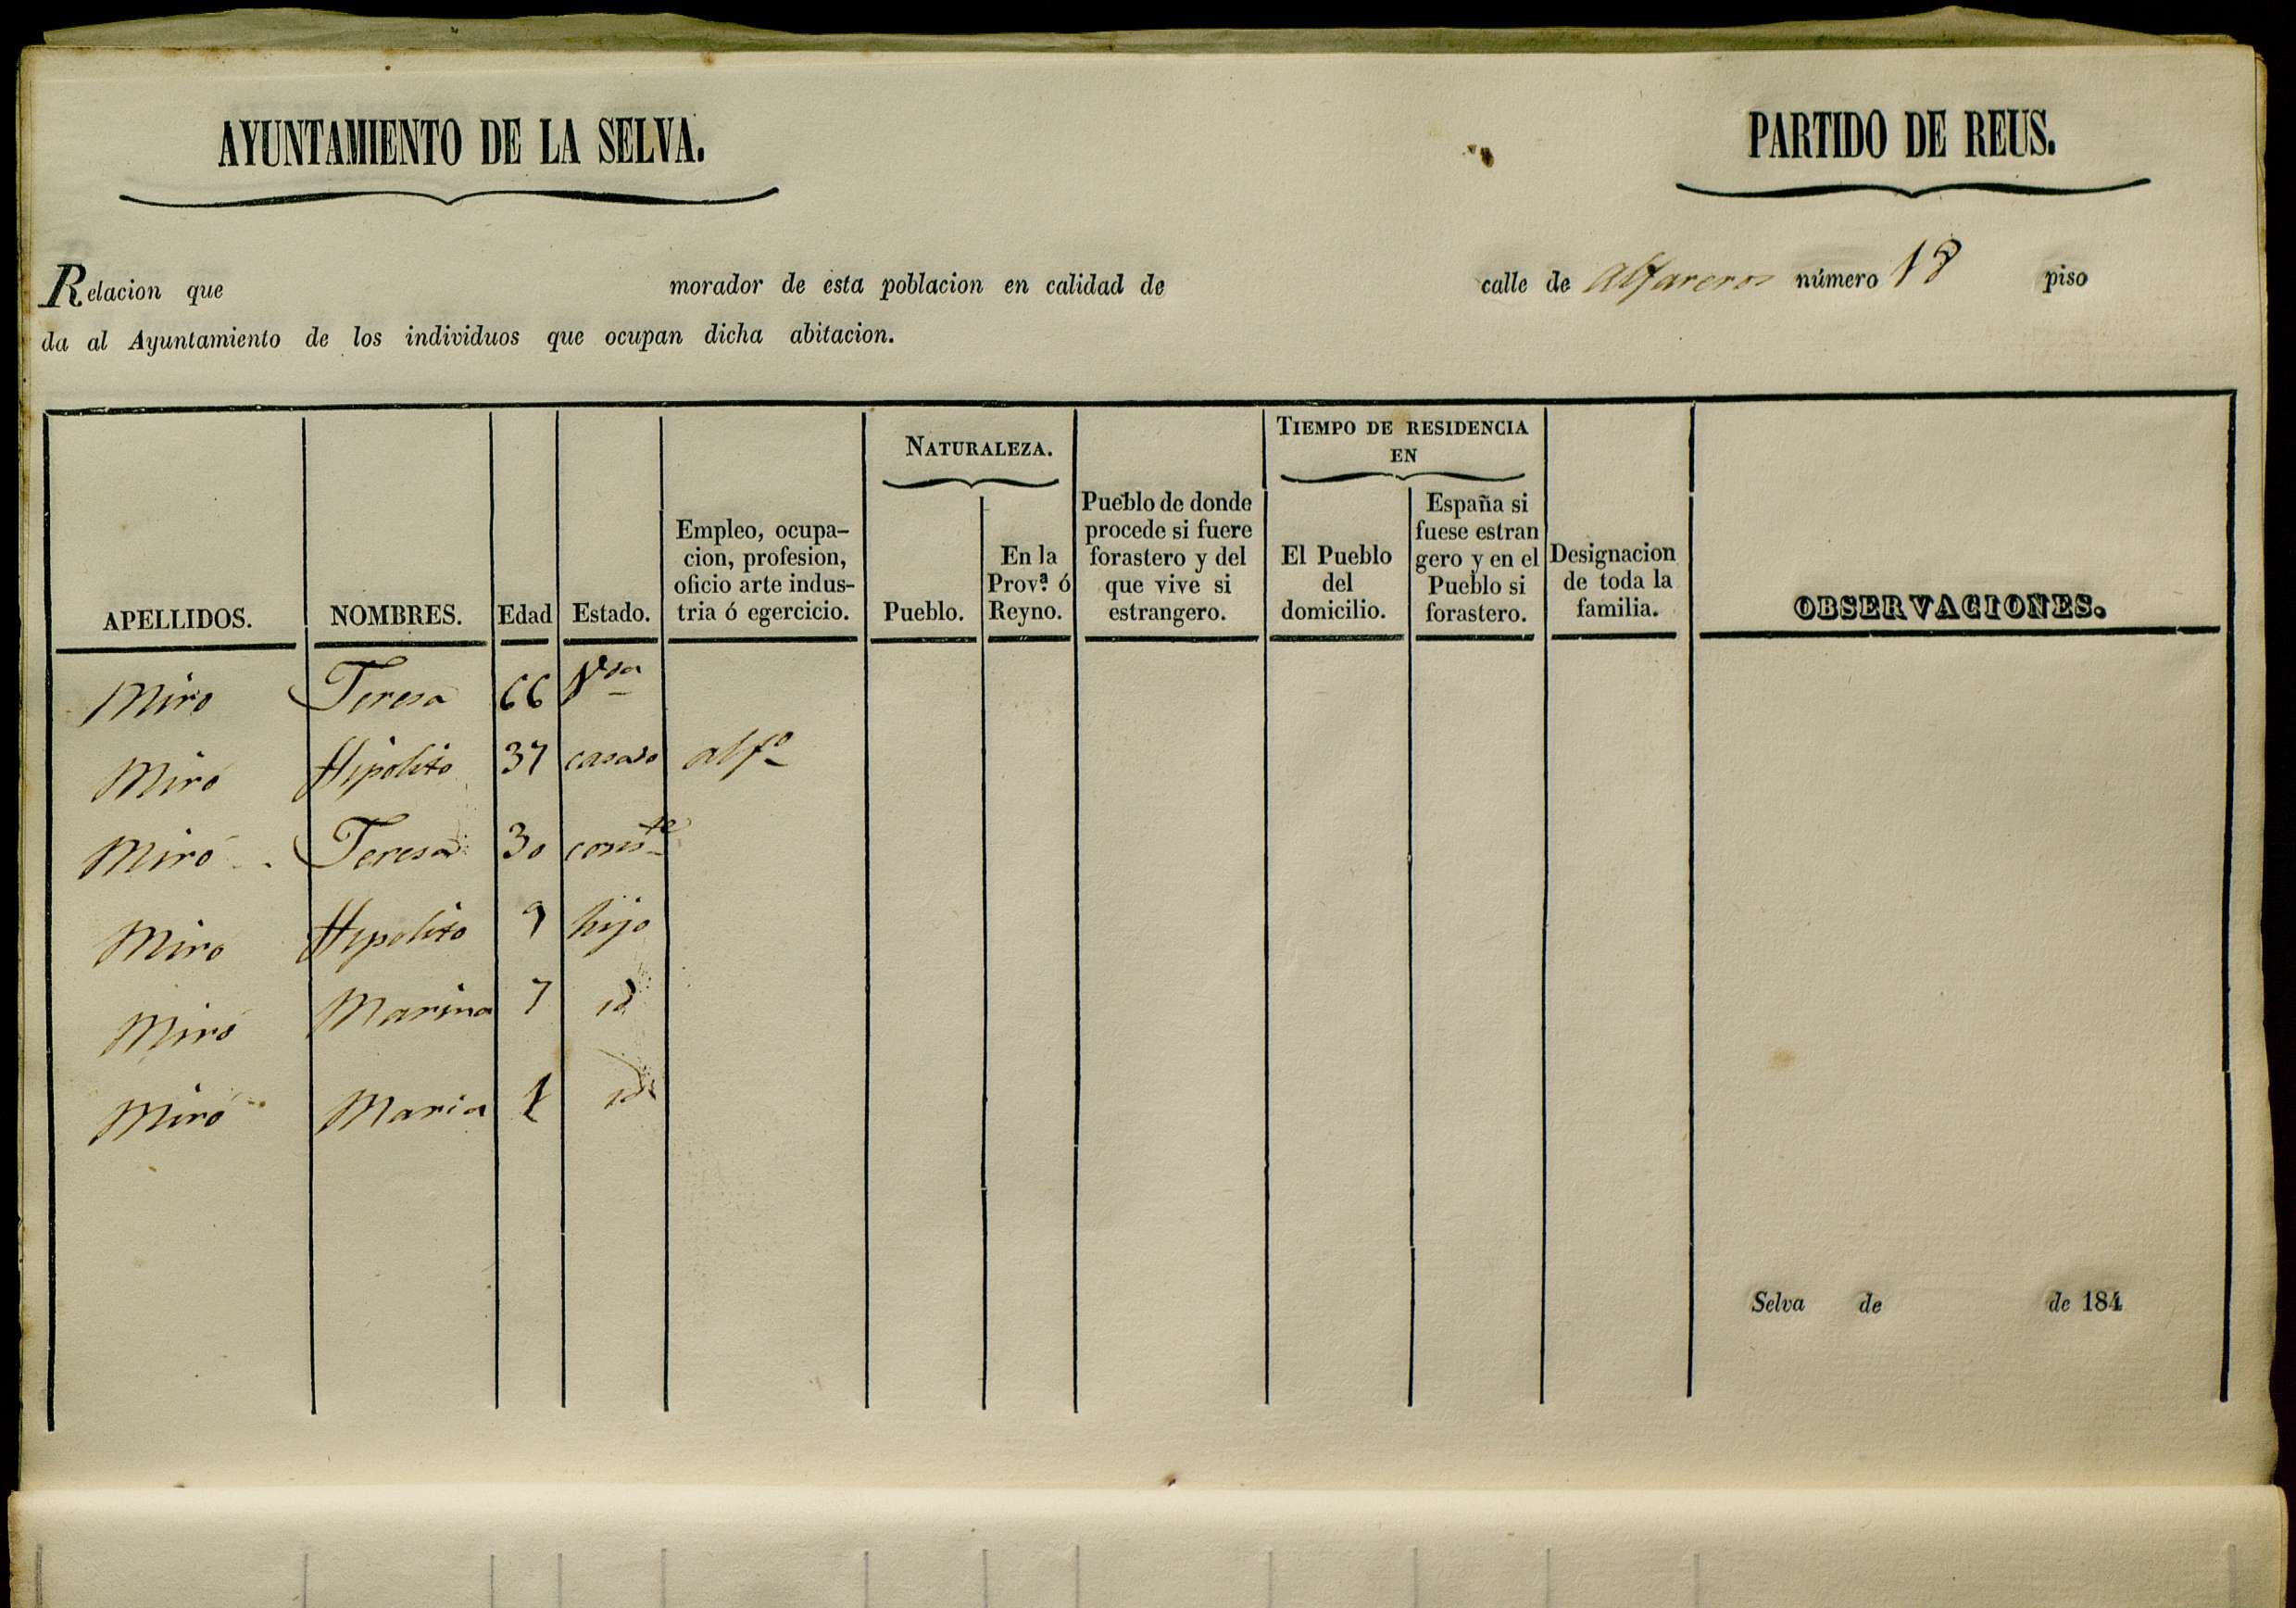 AYUNTAMIENTO DE LA SELVA.
PARTIDO DE REUS.
Relacion que morador de esta poblacion en calidad de calle de Alfareros número 18 piso
da al Ayuntamiento de los individuos que ocupan dicha abitacion.
APELLIDOS.
NOMBRES.
Edad
Estado.
Empleo, ocupa-
cion, profesion,
oficio arte indus-
tria ó egercicio.
NATURALEZA.
Pueblo.
En la
Prov.ª ó
Reyno.
Pueblo de donde
procede si fuere
forastero y del
que vive si
estrangero.
TIEMPO DE RESIDENCIA
EN
El Pueblo
del
domicilio.
España si
fuese estran
gero y en el
Pueblo si
forastero.
Designacion
de toda la
familia.
OBSERVACIONES.
Miro Teresa 66 Vda
Miró Hipolito 37 casado alfo
Miró Teresa 30 conste
Miró Hipolito 9 hijo
Miró Marina 7 id
Miró Maria id
Selva de de 184